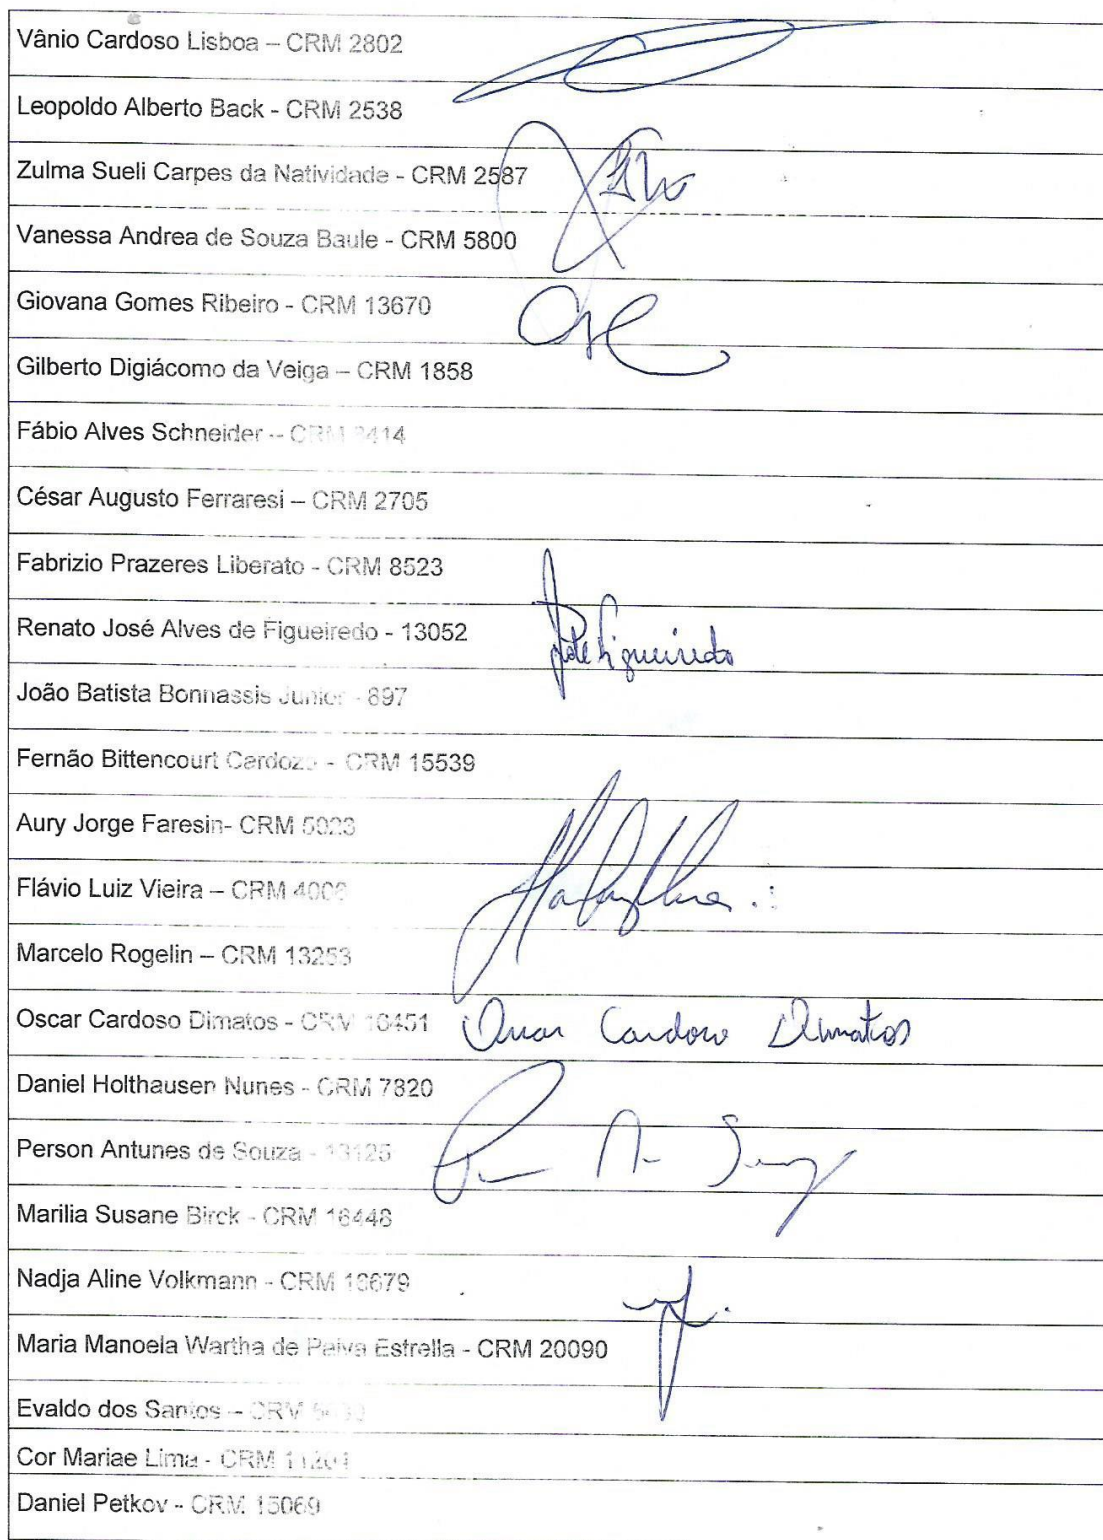 Vânio Cardoso Lisboa – CRM 2802
Leopoldo Alberto Back - CRM 2538
Zulma Sueli Carpes da Natividade - CRM 2587
Vanessa Andrea de Souza Baule - CRM 5800
Giovana Gomes Ribeiro - CRM 13670
Gilberto Digiácomo da Veiga – CRM 1858
Fábio Alves Schneider – CRM
César Augusto Ferraresi – CRM 2705
Fabrizio Prazeres Liberato - CRM 8523
Renato José Alves de Figueiredo - 13052
Figueiredo
João Batista Bonnassis Junior - 897
Fernão Bittencourt Cardozo - CRM 15539
Aury Jorge Faresin- CRM 5023
Flávio Luiz Vieira – CRM
Marcelo Rogelin – CRM 13253
Oscar Cardoso Dimatos - CRM 16451 Oscar Cardoso Dimatos
Daniel Holthausen Nunes - CRM 7820
Person Antunes de Souza - 13125
Marilia Susane Birck - CRM 16448
Nadja Aline Volkmann - CRM 13679
Maria Manoela Wartha de Paiva Estrella - CRM 20090
Evaldo dos Santos – CRM
Cor Mariae Lima - CRM
Daniel Petkov - CRM 15069